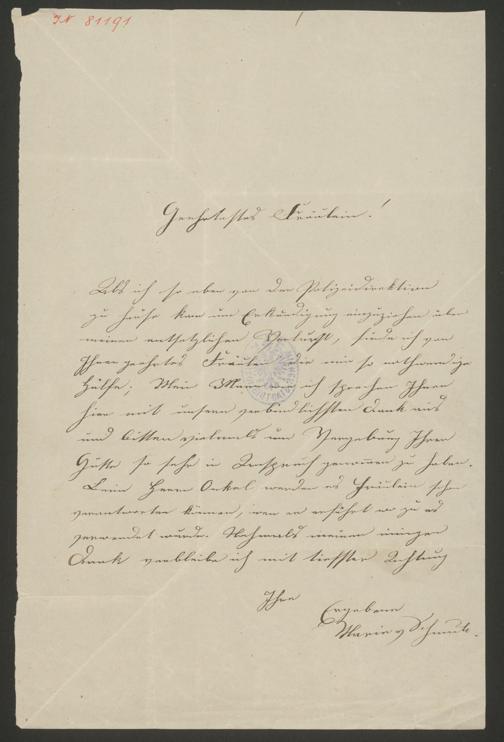 IN 81191
Geehrtestes Fräulein!
Als ich so eben von der Polizeidirektion
zu Hause kam um Erkundigung einzuziehen über
meinen entsetzlichen Verlust, finde ich von
Ihnen geehrtes Fräulein die mir so nothwendige
Hülfe; Mein Mann und ich sprechen Ihnen
hier mit unsern verbindlichsten Dank aus
und bitten vielmals um Vergebung Ihre
Güte so sehr in Anspruch genommen zu haben.
Beim Herrn Onkel werden es Fräulein schon
verantworten können, wen er erfährt wozu es
verwendet wurde. Nochmals meinen innigen
Dank verbleibe ich mit tiefster Achtung
Ihre
Ergebene
Marie v